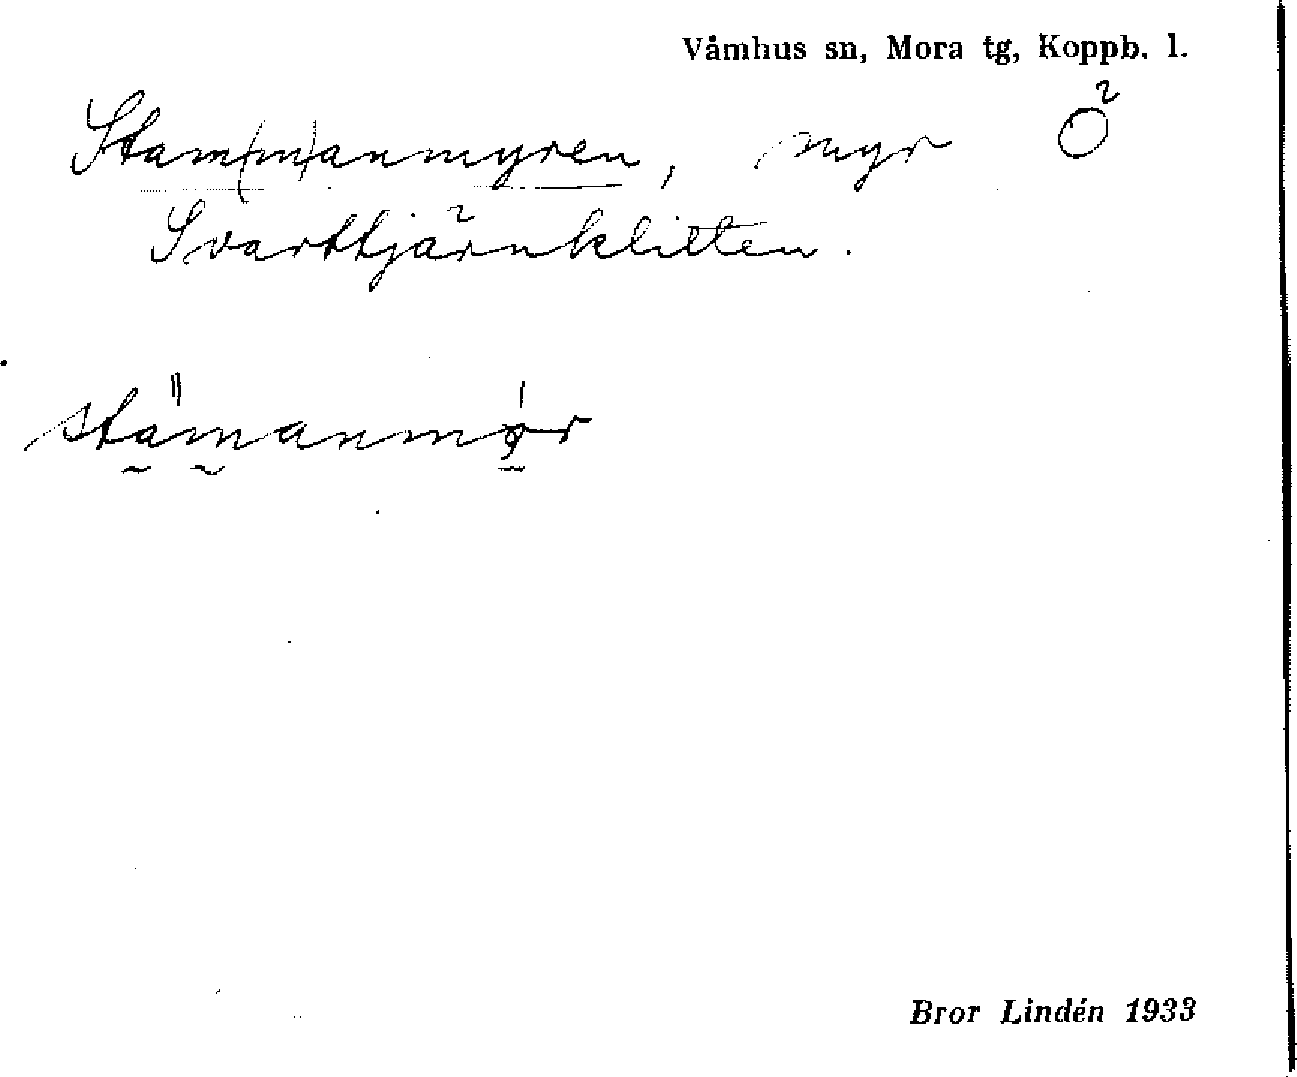 Våmhus sn, Mora tg, Koppb. l.
Stam(m)anmyren, myr Ö
Svarttjärnklitten.
stämanmȯr
Bror Lindén 1933